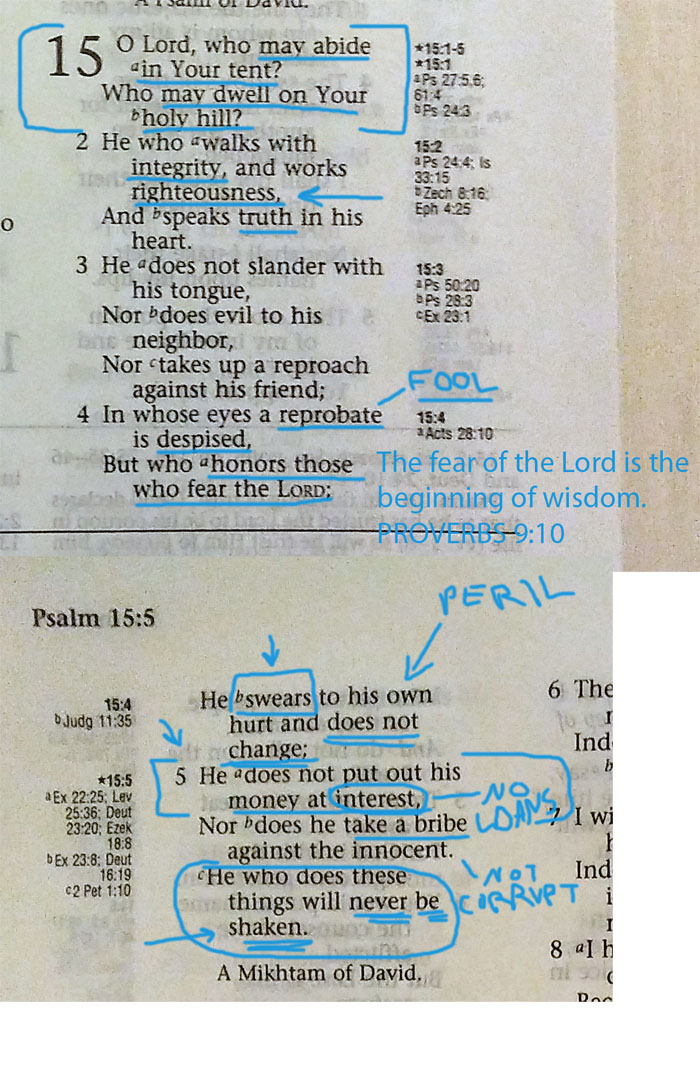 A Psalm of David.
15 O Lord, who may abide
ain Your tent?
Who may dwell on Your
bholy hill?
2 He who awalks with
integrity, and works
righteousness,
And bspeaks truth in his
heart.
3 He adoes not slander with
his tongue,
Nor bdoes evil to his
neighbor,
Nor ctakes up a reproach
against his friend;
4 In whose eyes a reprobate
is despised,
But who ahonors those
who fear the LORD;
*15:1-5
*15:1
aPs 27:5,6;
61:4
bPs 24:3
15:2
aPs 24:4; Is
33:15
bZech 8:16;
Eph 4:25
15:3
aPs 50:20
bPs 28:3
cEx 23:1
FOOL
15:4
aActs 28:10
The fear of the Lord is the
beginning of wisdom.
PROVERBS 9:10
PERIL
Psalm 15:5
15:4
bJudg 11:35
*15:5
aEx 22:25; Lev
25:36; Deut
23:20; Ezek
18:8
bEx 23:8; Deut
16:19
c2 Pet 1:10
He bswears to his own
hurt and does not
change;
5 He adoes not put out his
money at interest,
Nor bdoes he take a bribe
against the innocent.
cHe who does these
things will never be
shaken.
A Mikhtam of David.
NO
LOANS
NOT
CORRUPT
6 The
Ind
b
7 I wi
Ind
8 aI h